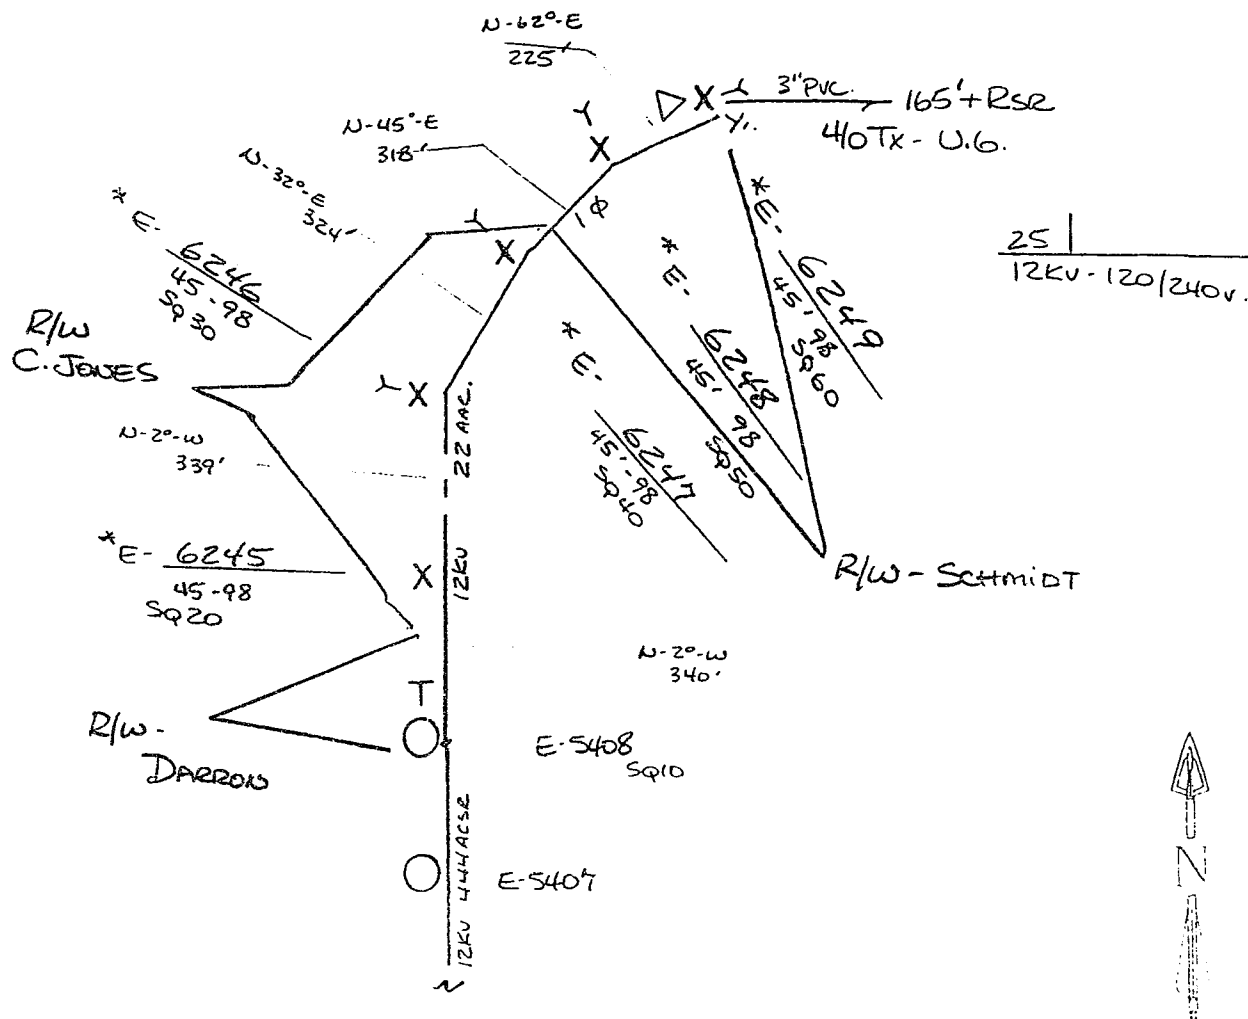 N-62°-E
225'
3" PVC.
165' + RSR
4/0 TX - U.G.
N-45°-E
318'
N-32°-E
324'
1 Φ
* E- 6246
45-98
SQ 30
* E- 6249
45' 98
SQ60
25
12KV - 120/240V.
* E- 6248
45' 98
SQ50
* E- 6247
45'-98
SQ 40
R/W
C. JONES
N-2°-W
339'
22 AAC.
12KV
* E- 6245
45-98
SQ20
R/W - SCHMIDT
N-2°-W
340'
T
R/W -
DARRON
E-5408
SQ10
12KV 444ACSR
E-5407
N